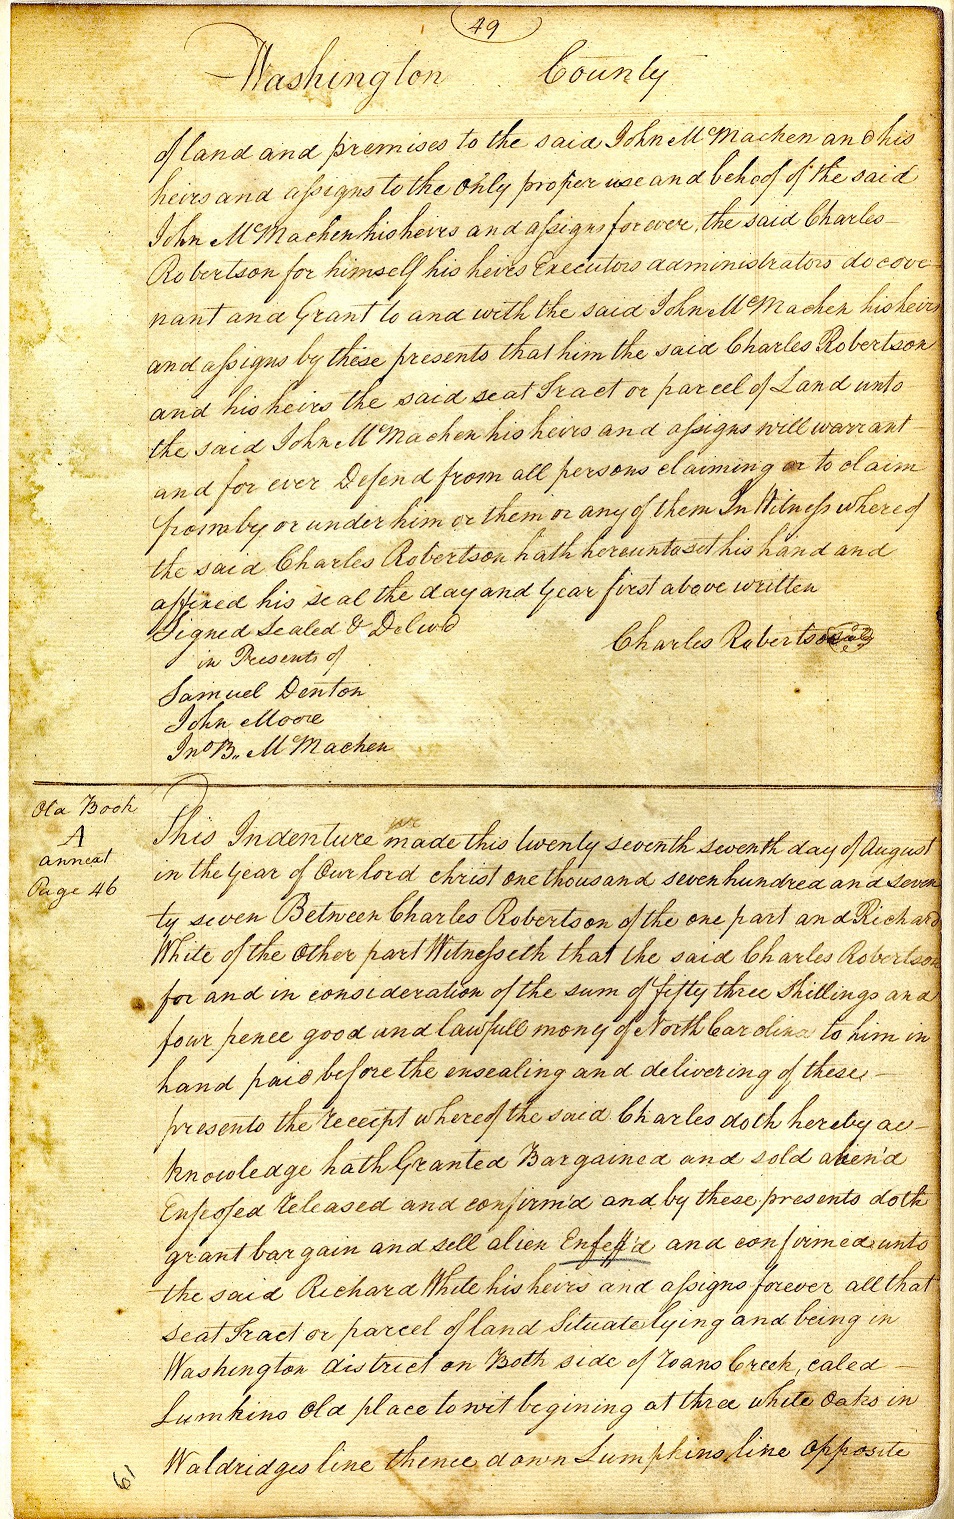 49
Washington County
of land and premises to the said John McMachen and his
heirs and assigns to the only proper use and behoof of the said
John McMachen his heirs and assigns forever, the said Charles
Robertson for himself his heirs Executors administrators do cove
nant and Grant to and with the said John McMachen his heirs
and assigns by these presents that him the said Charles Robertson
and his heirs the said seat Tract or parcel of Land unto
the said John McMachen his heirs and assigns will warrant
and for ever Defend from all persons claiming or to claim
from by or under him or them or any of them In Witness whereof
the said Charles Robertson hath hereunto set his hand and
affixed his seal the day and year first above written
Signed Sealed & Delivd
Charles Robertson seal
in Presents of
Samuel Denton
John Moore
Jno B. McMachen
Old Book
A
annext
Page 46
This Indenture made this twenty seventh seventh day of August
in the year of Our lord christ one thousand seven hundred and seven
ty seven Between Charles Robertson of the one part and Richard
White of the Other part Witnesseth that the said Charles Robertson
for and in consideration of the sum of fifty three Shillings and
four pence good and lawfull mony of North Carolina to him in
hand paid before the ensealing and delivering of these
presents the receipt whereof the said Charles doth hereby ac-
knowledge hath Granted Bargained and sold alien'd
Enfeofed released and confirm'd and by these presents doth
grant bargain and sell alien Enfeff'd and confirmed unto
the said Richard White his heirs and assigns forever all that
seat Tract or parcel of land Situate lying and being in
Washington district on Both side of Roans Creek, caled
Lumkins Old place to wit begining at three white Oaks in
Waldridges line thence down Lumpkins line opposite
61